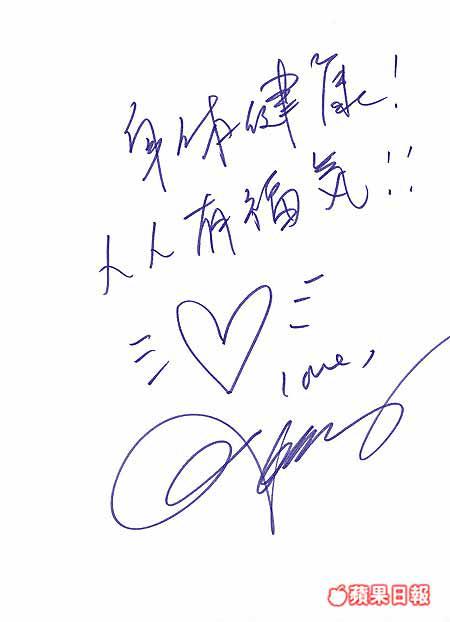 身体健康!
人人有福気!!
love,
蘋果日報